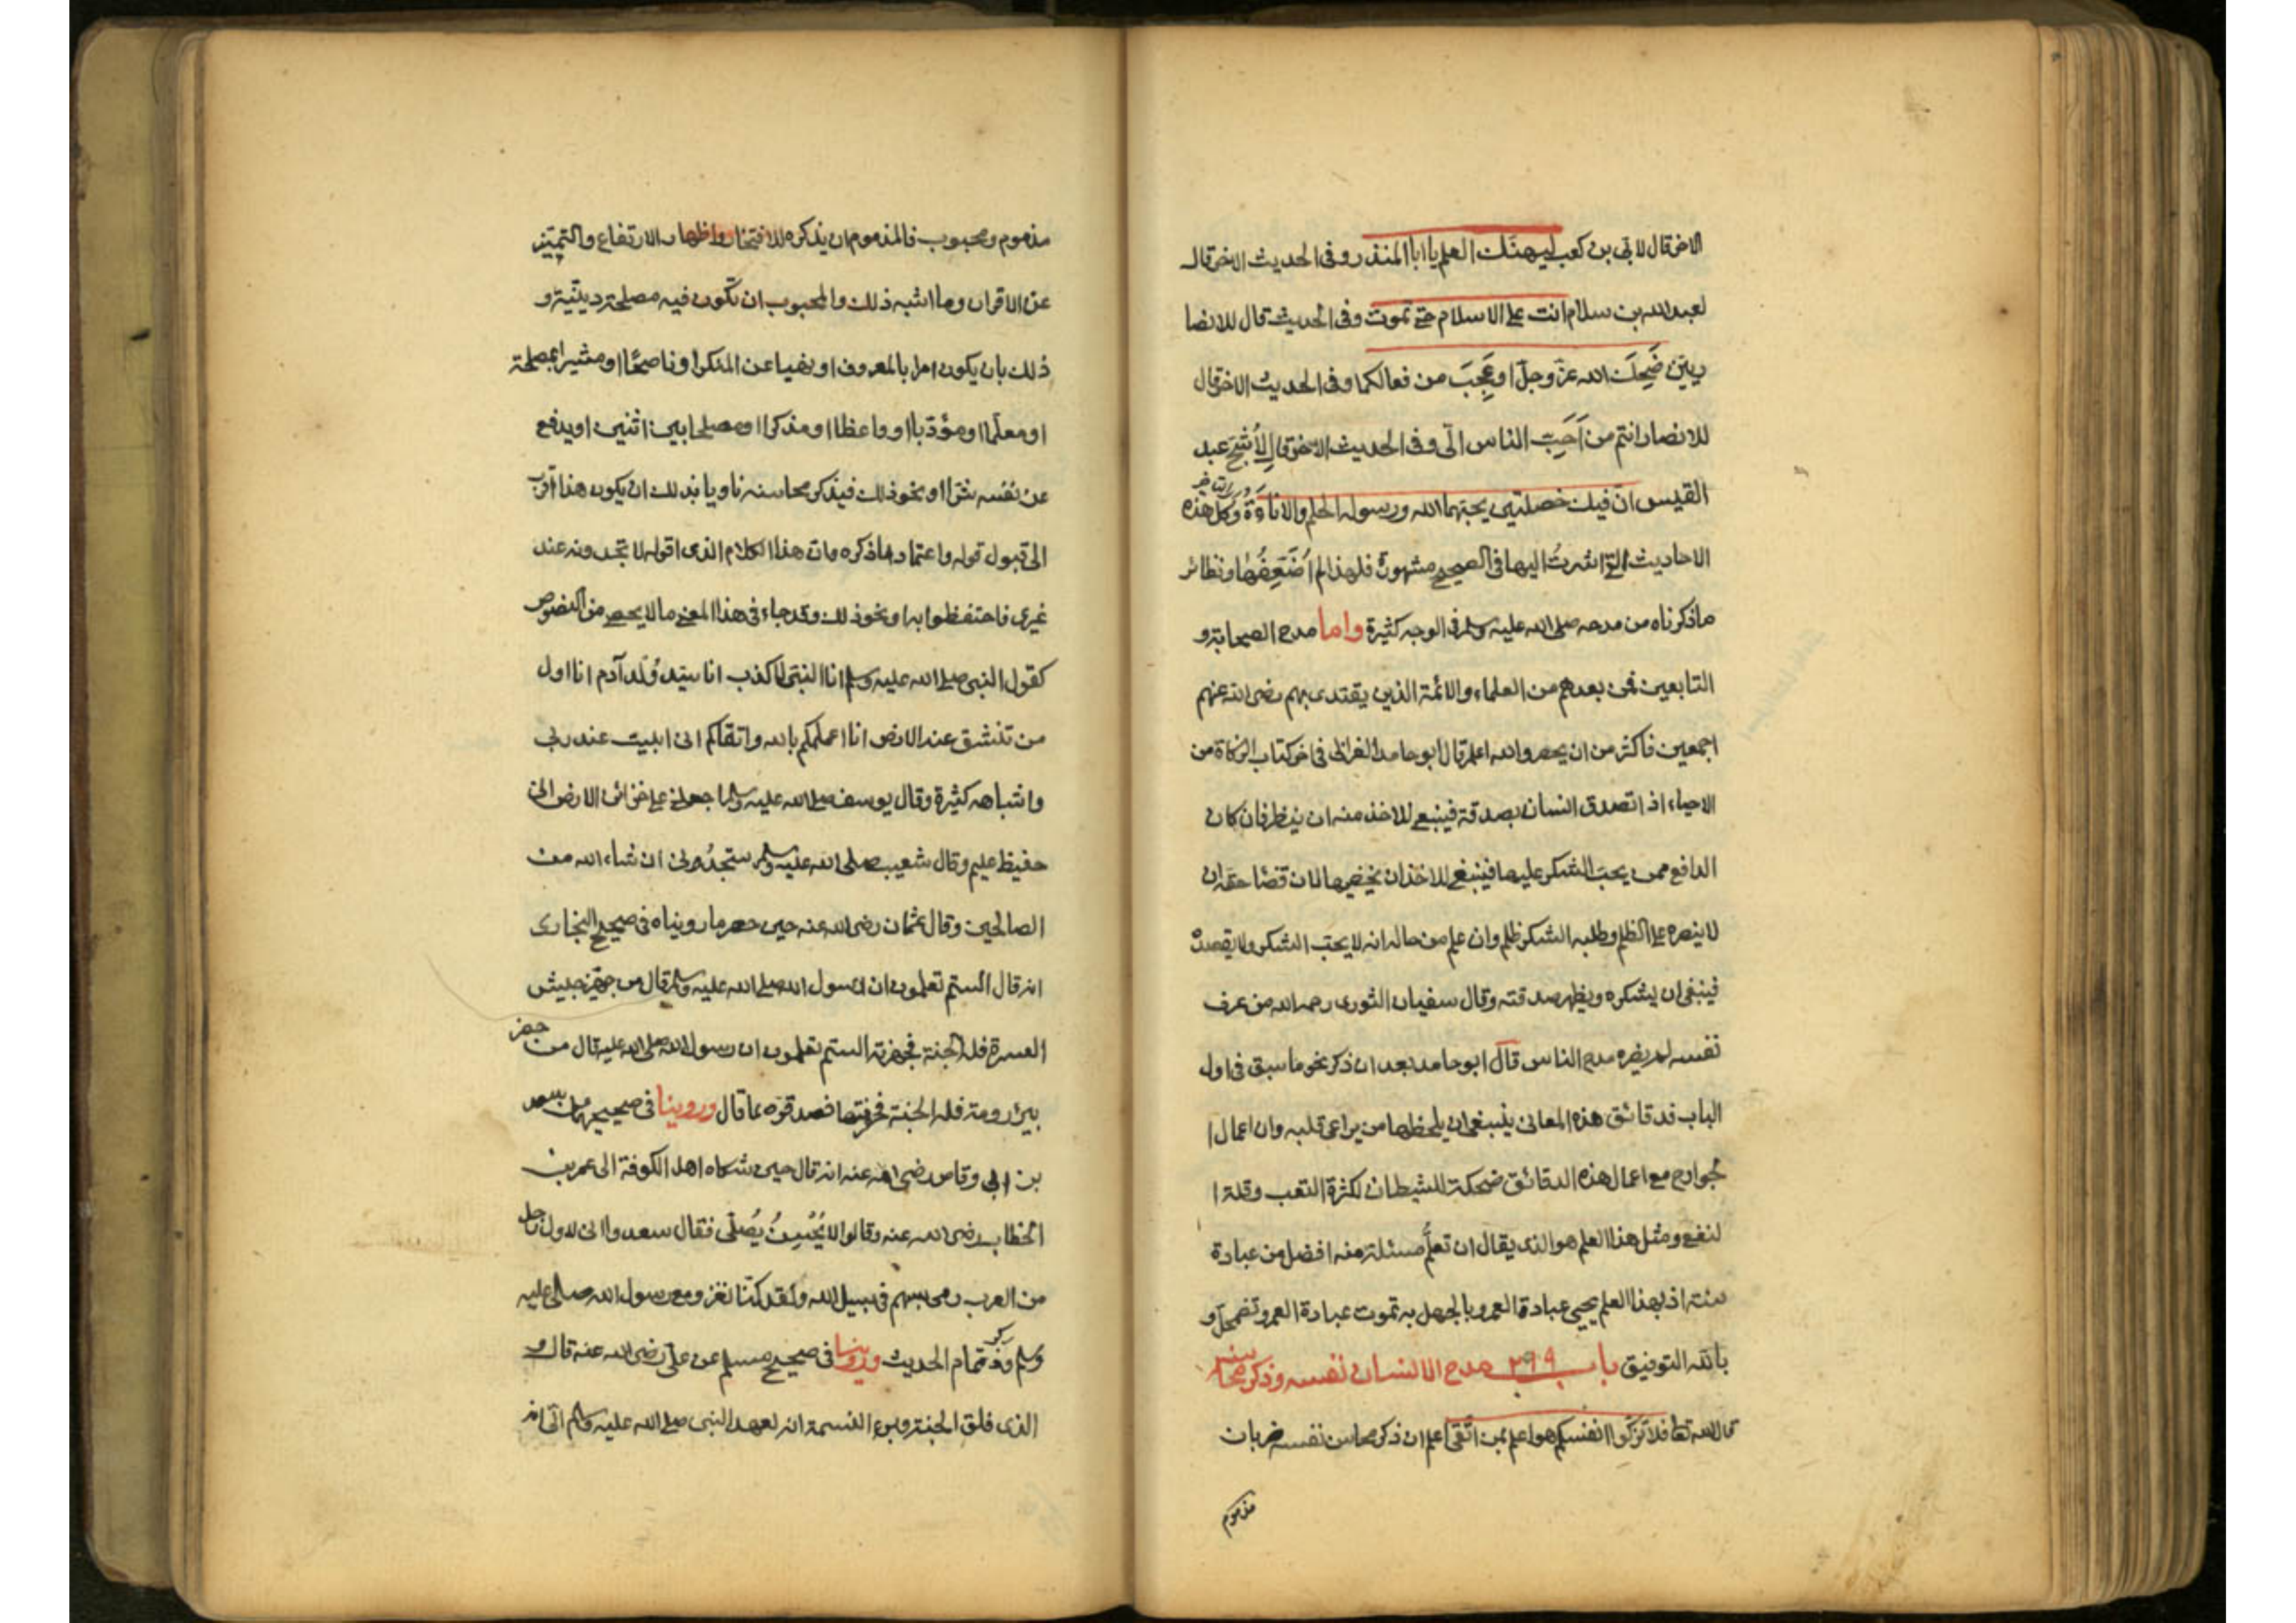 الاخر قال لابي بن كعب ليهنك العلم يا ابا المنذر وفى الحديث الاخر قال
لعبد الله بن سلام انت على الاسلام حتى تموت وفى الحديث قال للانصا
ريين ضَحِكَ الله عزّ وجلّ او عَجِبَ من فعالكما وفى الحديث الاخر قال
للانصار انتم من اَحَبّ الناس الىّ وفى الحديث الاخر قال لأشَجّ عبد
القيس انّ فيك خصلتين يحبّهما الله ورسوله الحلم والاناءَة وكلّ هذه
الاحاديث التى اشرتُ اليها فى الصحيح مشهورة فلهذا لم اُضَعِفُها ونظائر
ماذكرناه من مدحه صلى الله عليه وسلم فى الوجه كثيرة واما مدح الصحابة و
التابعين فمن بعدهم من العلماء والائمة الذين يقتدى بهم رضى الله عنهم
اجمعين فاكثر من ان يحصر والله اعلم قال ابو حامد الغزالى فى اخر كتاب الزكاة من
الاحياء اذا تصدق انسان بصدقة فينبغى للاخذ منه ان ينظر فان كان
الدافع ممن يحبّ الشكر عليها فينبغى للاخذ ان يخفيها لان قضا حقه ان
لا ينصره على الظلم وطلبه الشكر ظلم وان علم من حاله انه لا يحبّ الشكر ولا يقصدهُ
فينبغى ان يشكره ويظهر صدقته وقال سفيان الثورى رحمه الله من عرف
نفسه لم يضره مدح الناس قال ابو حامد بعد ان ذكر نحو ما سبق فى اول
الباب فدقائق هذه المعانى ينبغى ان يلحظها من يراعى قلبه وان اعمال ا
لجوارح مع اعمال هذه الدقائق ضحكة للشيطان لكثرة التعب وقلة ا
لنفع ومثل هذا العلم هو الذى يقال ان تعلُّم مسئلة منه افضل من عبادة
سنة اذ بهذا العلم يحيى عبادة العمر وبالجهل به تموت عبادة العمر وتضمحلّ و
بالله التوفيق باب ٢٩٩ مدح الانسان نفسه وذكر محاسنه
قال الله تعا فلا تُزَكُّوا انفسكم هو اعلم بمن اتّقى اعلم ان ذكر محاسن نفسه ضربان
مذموم
مذموم ومحبوب فالمذموم ان يذكره للافتخار واظهار الارتفاع والتميّز
عن الاقران وما اشبه ذلك والمحبوب ان تكون فيه مصلحة دينّية و
ذلك بان يكون امرا بالمعروف او نهيا عن المنكر او ناصحًا او مشيرا بمصلحة
او معلّما او مؤدّبا او واعظا او مذكرا او مصلحا بين اثنين او يدفع
عن نفسه شرّا او نحو ذلك فيذكر محاسنه ناويا بذلك ان يكون هذا أقرب
الى قبول قوله واعتماد ما ذكره وان هذا الكلام الذى اقوله لا تجدونه عند
غيرى فاحتفظوا به او نحو ذلك وقد جاء فى هذا المعنى مالا يحصى من النصوص
كقول النبى صلى الله عليه وسلم انا النبىّ لا كذب انا سيّد وُلْد آدم انا اول
من تنشق عنه الارض انا اعلمكم بالله واتقاكم انى ابيت عند ربى
واشباهه كثيرة وقال يوسف صلى الله عليه وسلم اجعلنى على خزائن الارض انى
حفيظ عليم وقال شعيب صلى الله عليه وسلم ستجدُونى ان شاء الله من
الصالحين وقال عثمان رضى الله عنه حين حصر ما رويناه فى صحيح البخارى
انه قال ألستم تعلمون ان رسول الله صلى الله عليه وسلم قال من جهّز جيش
العسرة فله الجنة فجهزته الستم تعلمون ان رسول الله صلى الله عليه قال من حفر
بئر رومة فله الجنة فحفرتها فصدقوه بما قال وروينا فى صحيحيهما عن سعد
بن ابى وقاص رضى الله عنه انه قال حين شكاه اهل الكوفة الى عمر بن
الخطاب رضى الله عنه وقالوا لا يُحْسِنُ يُصلّى فقال سعد والله انى لاول رجل
من العرب رمى بسهم فى سبيل الله ولقد كنّا نغزو مع رسول الله صلى عليه
وسلم وذكر تمام الحديث وروينا فى صحيح مسلم عن علىّ رضى الله عنه قال و
الذى فلق الحبة وبرء النسمة انه لعهد النبى صلى الله عليه وسلم الىّ انه